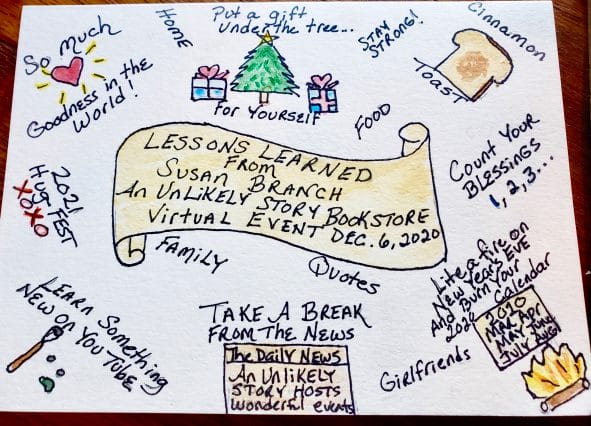 So Much
Goodness in the
World!
Home
Put a gift
Under the tree...
For Yourself
STAY
STRONG!
Cinnamon
Toast
FOOD
Count Your
Blessings
1, 2, 3...
LESSONS LEARNED
FROM
SUSAN BRANCH
An UnLikely Story Bookstore
Virtual Event Dec. 6, 2020
2021
Hug Fest
XOXO
Family
Quotes
Learn Something
New on You Tube
TAKE A BREAK
FROM THE NEWS
The Daily News
An UnLikely
Story Hosts
Wonderful events
Girlfriends
Lite a fire on
New Years Eve
And Burn Your
2020 Calendar
2020
Mar Apr
May June
July Aug